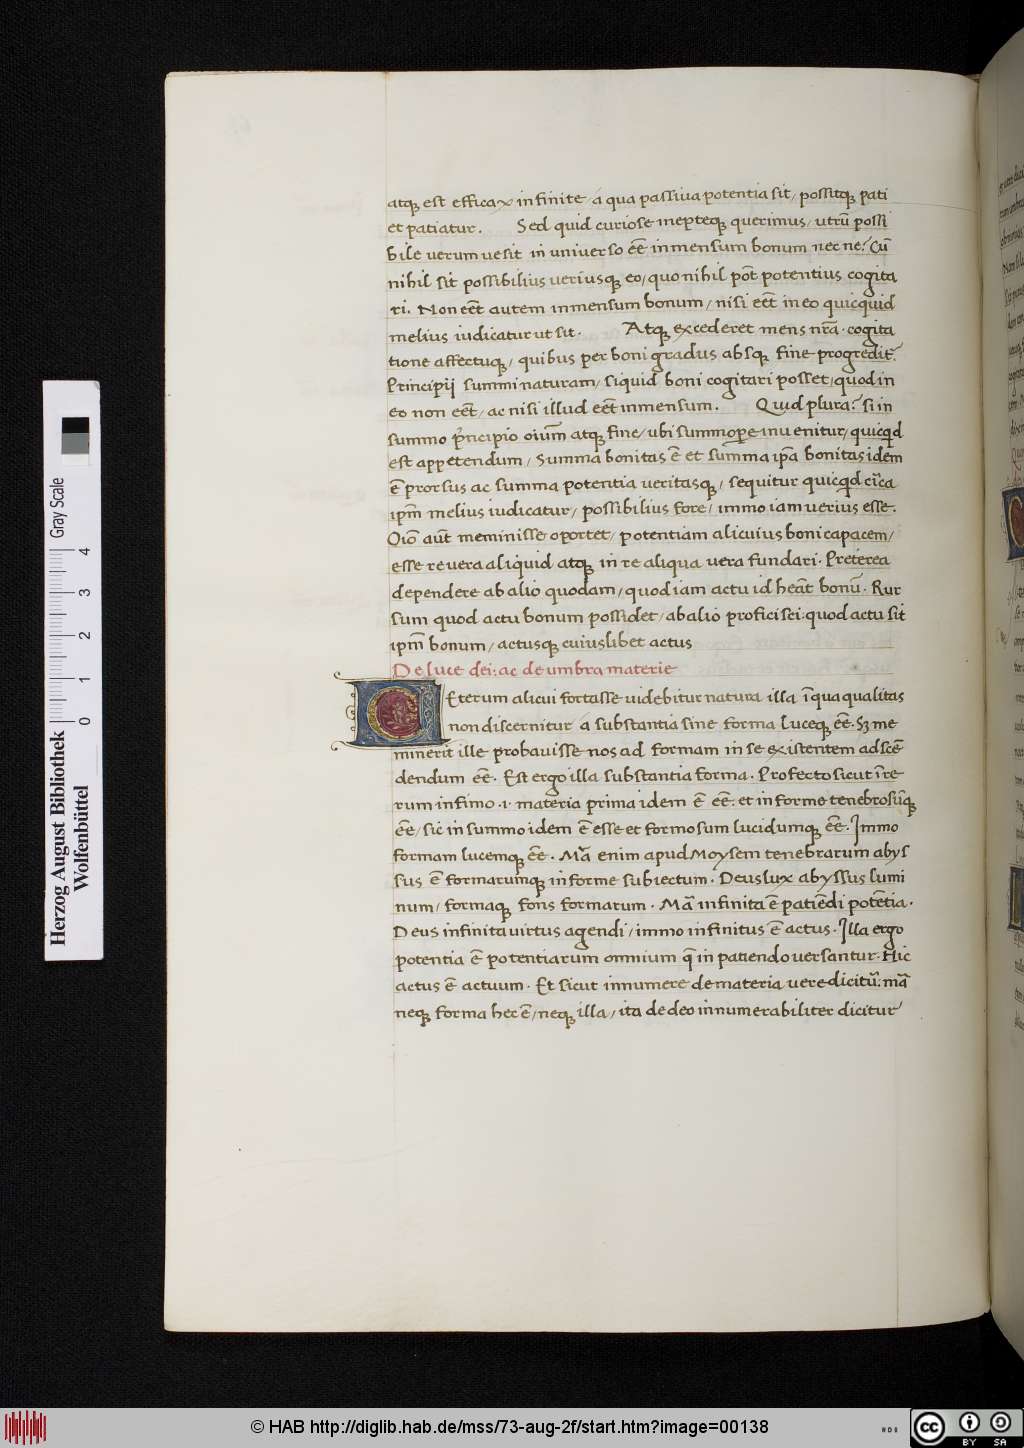 atq; est efficax infinite á qua passiua potentia sit, possitq; pati
et patiatur. Sed quid curiose inepteq; querimus, utrū possi
bile uerum ue sit in universo eē inmensum bonum nec ne? Cū
nihil sit possibilius ueriusq; eo, quo nihil pōt potentius cogita
ri. Non eēt autem inmensum bonum, nisi eēt in eo quicquid
melius iudicatur ut sit. Atq; excederet mens nr̄a cogita
tione affectuq;, quibus per boni gradus absq; fine progredit̄.
Principij summi naturam, siquid boni cogitari posset, quod in
eo non eēt, ac nisi illud eēt inmensum. Quid plura? si in
summo pr̄ncipio oium̄ atq; fine, ubi summope inuenitur, quicqd
est appetendum, summa bonitas ē et summa ip̄a bonitas idem
ē prorsus ac summa potentia ueritasq;, sequitur quicqd circa
ipm̄ melius iudicatur, possibilius fore, immo iam uerius esse.
Qiō aūt meminisse oportet, potentiam alicuius boni capacem,
esse reuera aliquid atq; in re aliqua uera fundari. Preterea
dependere ab alio quodam, quod iam actu id heāt bonū. Rur
sum quod actu bonum possidet, ab alio proficisci: quod actu sit
ipm̄ bonum, actusq; cuiuslibet actus
De luce dei: ac de umbra materie
Eterum alicui fortasse uidebitur natura illa ī qua qualitas
non discernitur a substantia sine forma luceq; eē. Sȝ me
minerit ille probauisse nos ad formam in se existentem adscē
dendum eē. Est ergo illa substantia forma. Profecto sicut ī re
rum infimo .i. materia prima idem ē eē: et informe tenebrosūq;
eē, sic in summo idem ē esse et formosum lucidumq; eē. Immo
formam lucemq; eē. Mā enim apud Moysem tenebrarum abys
sus ē formarumq; informe subiectum. Deus lux abyssus lumi
num, formaq; fons formarum. Mā infinita ē patiēdi potētia.
Deus infinita uirtus agendi, immo infinitus ē actus. Illa ergo
potentia ē potentiarum omnium q̄ in patiendo uersantur. Hic
actus ē actuum. Et sicut innumere de materia uere dicitū: mā
neq; forma hec ē, neq; illa, ita de deo innumerabiliter dicitur
Herzog August Bibliothek
Wolfenbüttel
0 1 2 3 4
Gray Scale
© HAB http://diglib.hab.de/mss/73-aug-2f/start.htm?image=00138
cc BY SA